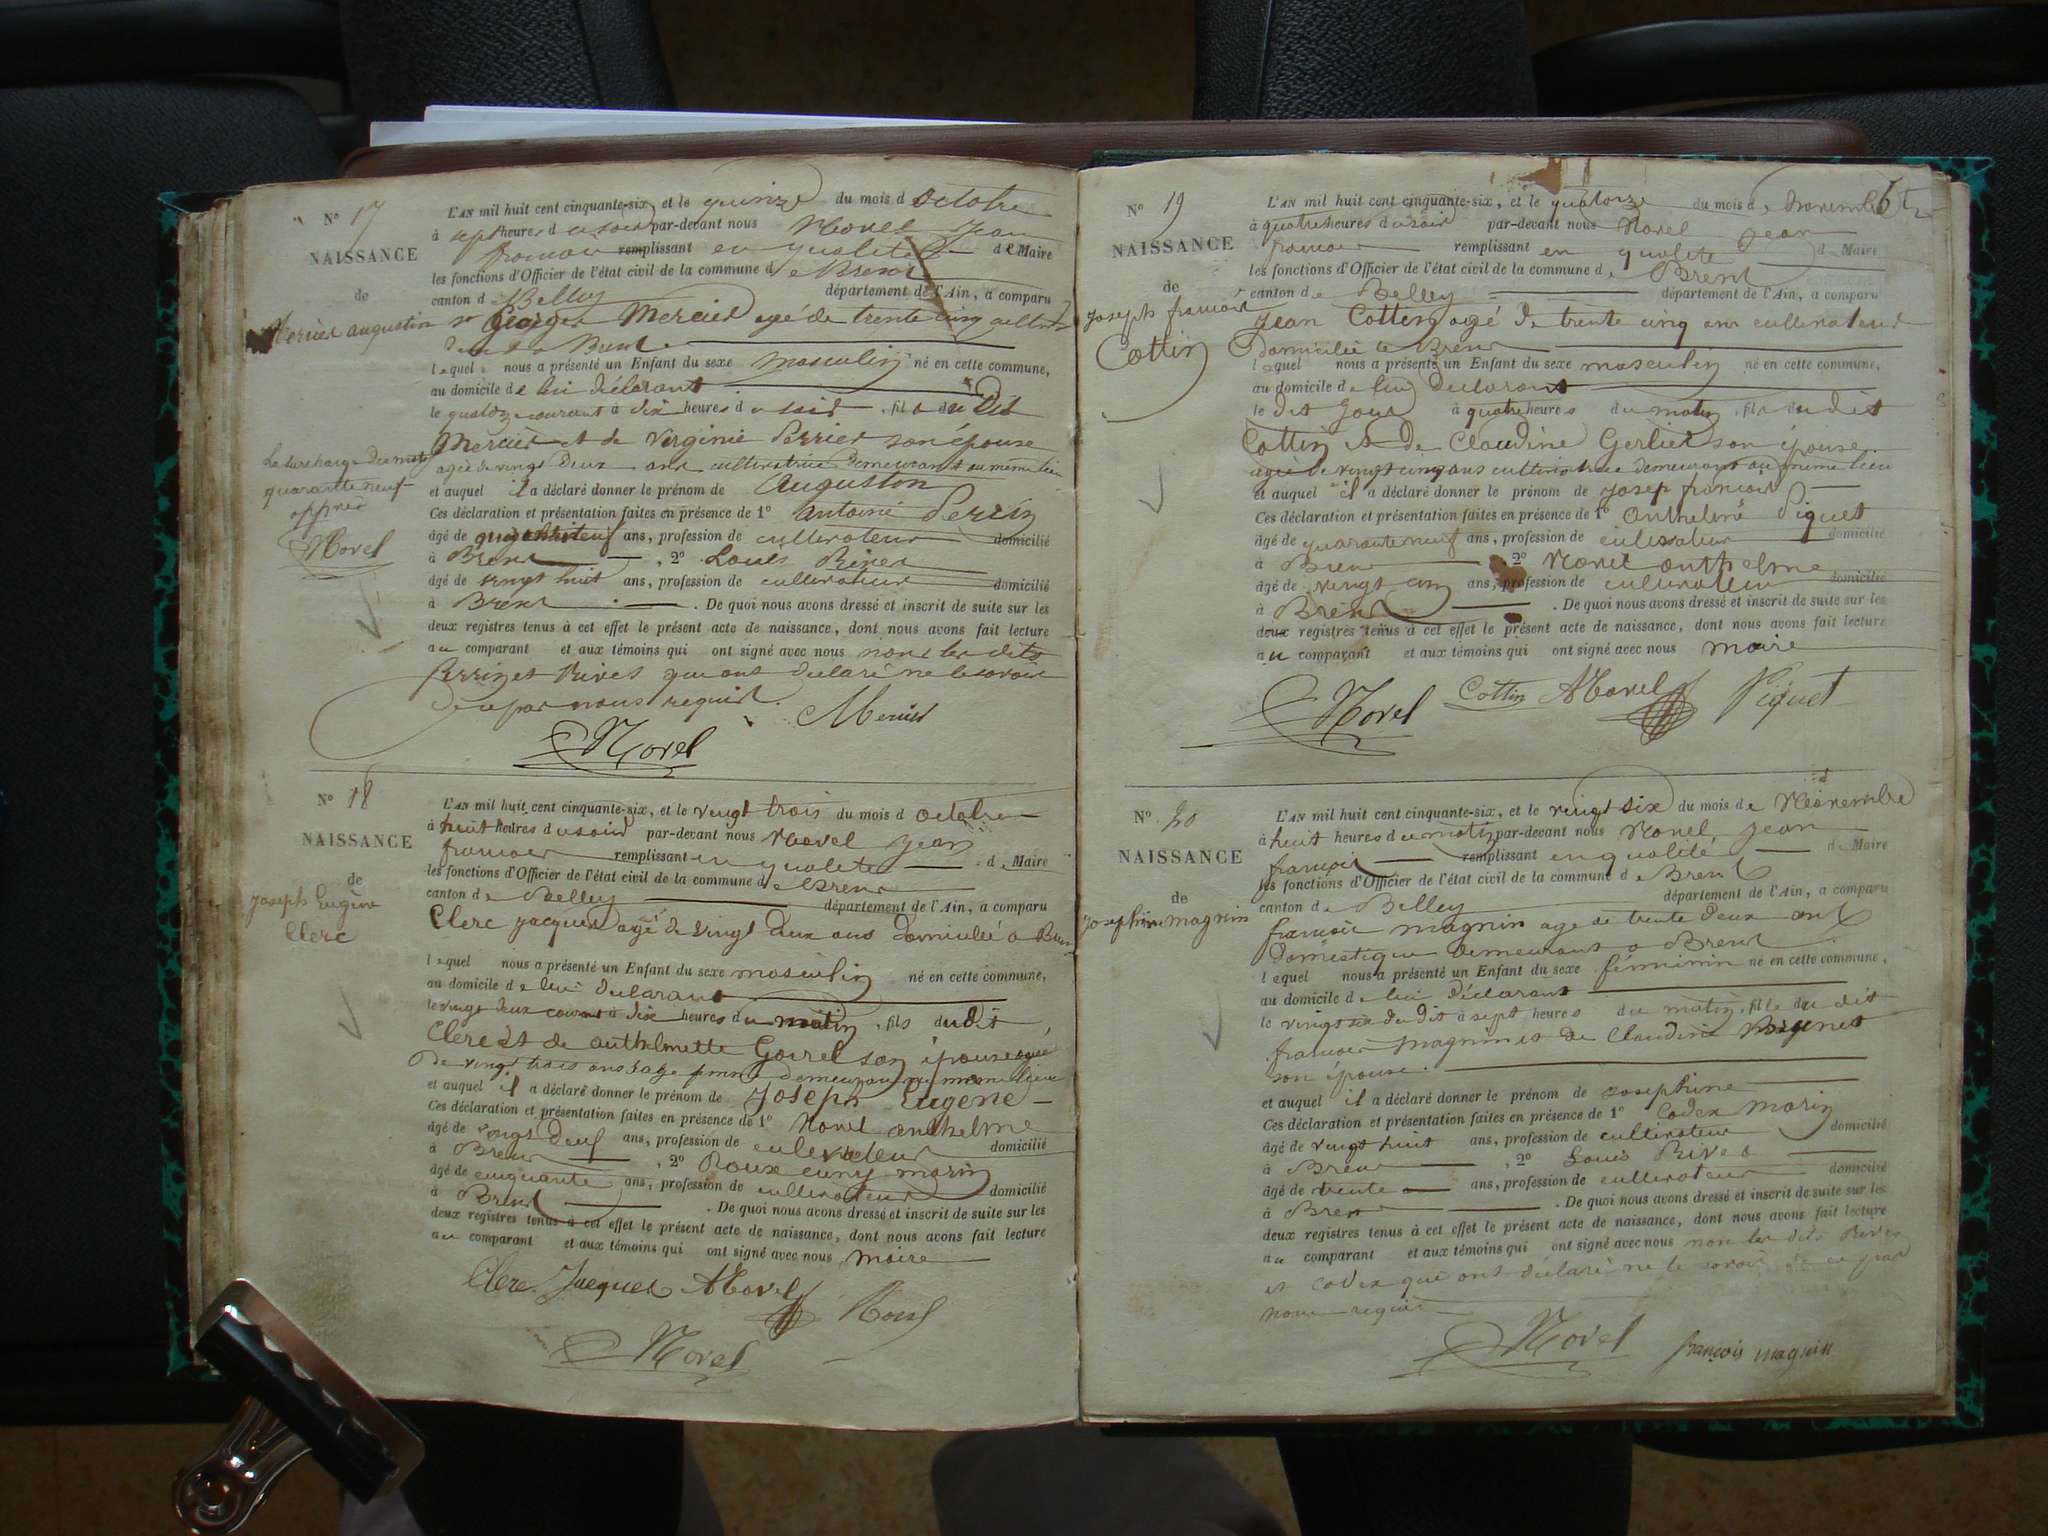 N° 17
NAISSANCE
de
Mercier augustin
La surcharge du mot
quarante neuf
Morel
L'AN mil huit cent cinquante-six, et le quinze du mois d octobre
à sept heures du soir par-devant nous Morel Jean
françois remplissant en qualité de Maire
les fonctions d'Officier de l'état civil de la commune de Brens
canton d Belley département de l'Ain, a comparu
sr Georges Mercier agé de trente cinq
à Brens
lequel nous a présenté un Enfant du sexe masculin né en cette commune,
au domicile de lui déclarant
le quatorze courant à dix heures du soir, fils du dit
Mercier et de Virginie Perrier son épouse
agée de vingt deux ans cultivatrice demeurant au même lieu
et auquel il a déclaré donner le prénom de Auguston
Ces déclaration et présentation faites en présence de 1° antoine Perrin
âgé de ans, profession de cultivateur domicilié
à Brens, 2° Louis Rives
âgé de vingt huit ans, profession de cultivateur domicilié
à Brens. De quoi nous avons dressé et inscrit de suite sur les
deux registres tenus à cet effet le présent acte de naissance, dont nous avons fait lecture
au comparant et aux témoins qui ont signé avec nous non les dits
Perrin et Rives qui ont déclaré ne le savoir
de ce par nous requis.
Mercier
Morel
N° 18
NAISSANCE
de
Joseph Eugène
Clerc
L'AN mil huit cent cinquante-six, et le vingt trois du mois d octobre
à huit heures du soir par-devant nous Morel Jean
françois remplissant en qualité de Maire
les fonctions d'Officier de l'état civil de la commune de Brens
canton de Belley département de l'Ain, a comparu
Clerc Jacques agé de vingt deux ans domicilié a Brens
lequel nous a présenté un Enfant du sexe masculin né en cette commune,
au domicile de lui declarant
le vingt deux courant à dix heures du matin, fils du dit
Clerc et de anthelmette Goirel son épouse agée
de vingt trois ans sage femme demeurant au même lieu
et auquel il a déclaré donner le prénom de Joseph Eugène
Ces déclaration et présentation faites en présence de 1° Morel anthelme
âgé de ans, profession de cultivateur domicilié
à Brens, 2° Roux cuny marin
âgé de cinquante ans, profession de cultivateur domicilié
à Brens. De quoi nous avons dressé et inscrit de suite sur les
deux registres tenus à cet effet le présent acte de naissance, dont nous avons fait lecture
au comparant et aux témoins qui ont signé avec nous maire
Clerc Jacques AMorel Roux
Morel
N° 19
NAISSANCE
de
Joseph françois
Cottin
L'AN mil huit cent cinquante-six, et le quatorze du mois de novembre
à quatre heures du soir par-devant nous Morel Jean
françois remplissant en qualité de Maire
les fonctions d'Officier de l'état civil de la commune de Brens
canton de Belley département de l'Ain, a comparu
Jean Cottin agé de trente cinq ans cultivateur
Domicilié à Brens
lequel nous a présenté un Enfant du sexe masculin né en cette commune,
au domicile de lui declarant
le dit jour à quatre heures du matin, fils du dit
Cottin et de Claudine Gerlier son épouse
agée de vingt cinq ans cultivatrice demeurant au même lieu
et auquel il a déclaré donner le prénom de Josep françois
Ces déclaration et présentation faites en présence de 1° anthelme Piquet
âgé de quarante neuf ans, profession de cultivateur domicilié
à Brens, 2° Morel anthelme
âgé de vingt ans, profession de cultivateur domicilié
à Brens. De quoi nous avons dressé et inscrit de suite sur les
deux registres tenus à cet effet le présent acte de naissance, dont nous avons fait lecture
au comparant et aux témoins qui ont signé avec nous maire
Morel Cottin AMorel Piquet
N° 20
NAISSANCE
de
Josephine magnin
L'AN mil huit cent cinquante-six, et le vingt six du mois de Novembre
à huit heures du matin par-devant nous Morel Jean
françois remplissant en qualité de Maire
les fonctions d'Officier de l'état civil de la commune de Brens
canton de Belley département de l'Ain, a comparu
françois magnin age de trente deux ans
Domestique demeurant a Brens
lequel nous a présenté un Enfant du sexe féminin né en cette commune,
au domicile de lui déclarant
le vingt six du dit à sept heures du matin, fille du dit
françois magnin et de Claudine
son épouse.
et auquel il a déclaré donner le prénom de Josephine
Ces déclaration et présentation faites en présence de 1° Codex marin
âgé de vingt huit ans, profession de cultivateur domicilié
à Brens, 2° Louis Rives
âgé de trente ans, profession de cultivateur domicilié
à Brens. De quoi nous avons dressé et inscrit de suite sur les
deux registres tenus à cet effet le présent acte de naissance, dont nous avons fait lecture
au comparant et aux témoins qui ont signé avec nous non les dits Rives
et Codex qui ont déclaré ne le savoir de ce par
nous requis
Morel françois magnin